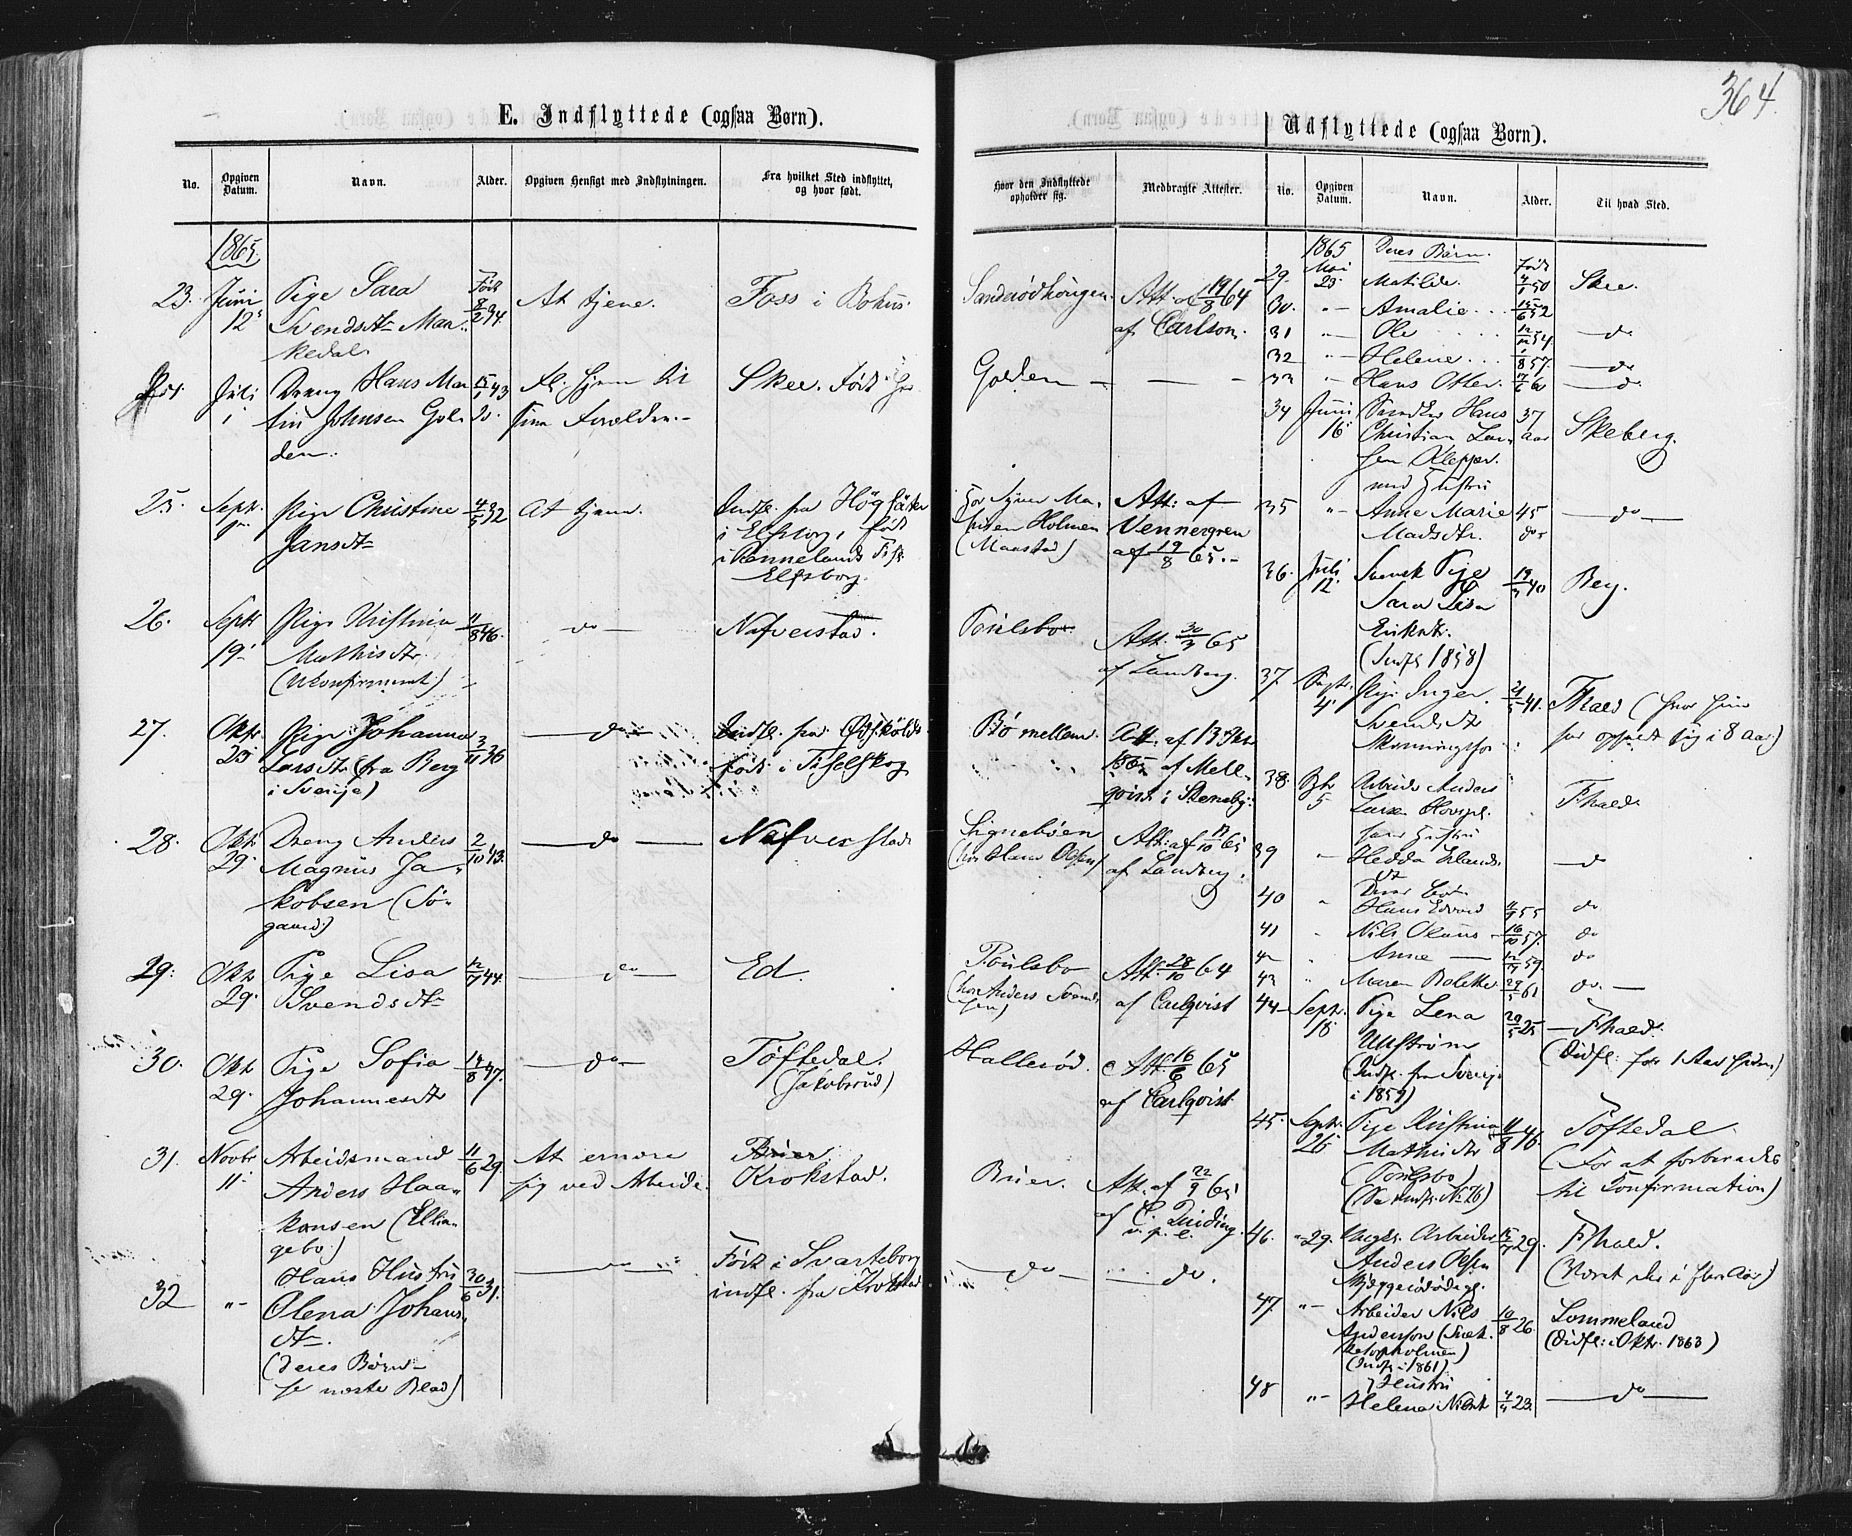 364
E. Indflyttede (ogsaa Børn).
No.
Opgiven Datum.
Navn.
Alder.
Opgiven Hensigt med Indflytningen.
Fra hvilket Sted indflyttet, og hvor født.
Hvor den Indflyttede opholder sig.
Medbragte Attester.
1865.
23. Juni 12' Pige Sara Svendsdtr Munkedal. Født 8/2 34 At tjene. Foss i Bohus. Sanderødhougen. Att. af 19/8 64 af Carlson.
Juli 1 Dreng Hans Martin Johnsen Golden. 15/1 43 Fl. hjem til sine Forældre. Skee. Født her Golden — — —
25. Septr Pige Christine Jansdtr 4/5 32 At tjene. Indfl. fra Högsäter i Elfsborg, født i Elfsborg. (Maastad) Holmen Att: af Vennergren af 19/8 65.
26. Septr 19' Pige Kristina Mathisdtr. (Ukonfirmeret) 11/8 46. do — Nafverstad. Poulsbo. Att. 30/3 65 af Landberg.
27. Oktr 23 Pige Johanna Larsdtr (fra Berg i Sverige) 3/11 36 — do — Indfl. fra født i Tisselskog Bø mellem. Att. af 13 Oktr 1865 af Mellqvist i Steneby.
28. Oktr 29. Dreng Anders Magnus Jakobsen (Søgaard) 2/10 43. — do — Nafverstad Signebøen (hos Hans Olsen) Att: af 17/10 65 af Landberg.
29. Okt 29. Pige Lisa Svendsdtr 12/7 44. — do — Ed. Poulsbo (hos Anders Svendsen) Att. 28/10 64 af Carlqvist
30. Okt 29. Pige Sofia Johannesdtr 14/8 47. — do — Töftedal. (Jakobsrud) Hallerød. Att. 16/6 65 af Carlqvist.
31. Novbr 11. Arbeidsmand Anders Haakonsen (Elliagebo) 11/6 29. At ernære sig ved Arbeide. Krokstad. Brier. Att. af 22/9 65 af C. Quiding v. p. l.
32 "– Hans Hustru Olena Johansdtr. (deres Børn se næste Blad) 30/6 31. — do — Født i Svarteborg indfl. fra Krokstad do — do.
Udflyttede (ogsaa Børn).
No.
Opgiven Datum.
Navn.
Alder.
Til hvad Sted.
1865 Deres Børn.
29. Mai 23. Matilde. Født 4/1 50 Skee.
30. "– Amalie... 15/6 52
31 "– Ole 12/12 54 — do
32 "– Helene... 1/8 57. — do
33 "– Hans Otter. 17/6 60 — do
34 Juni 16' Hans Christian Larsen Klepper. med Hustru 37 Aar Skeberg.
35 " Anne Marie Madsdtr. 45 do — do —
36. Juli 12. Svensk Pige Sara Lisa Eriksdtr. (Indfl 1858) 19/3 40 Bey.
37. Septr. 4' Pige Inger Svendsdtr 21/5 41. Fhald (hvor hun har opholdt sig i 8 Aar)
38. 5 Arbeider Anders Larsen Fhald.
39 – Hedda — do
40 " Deres Børn Hans Edvard 11/9 55 do
41 " Nils Olaus 16/10 57. do
42 " Anne — 12/7 59. do
43 " Maren Bolette. 29/5 61 do. —
44 – Septr. 18 Pige Lena Ulfstrøm (Indfl. fra Sverige i 1859) 20/5 25 — Fhald. (Udfl. for 1 Aar siden)
45. Septr. 26 Pige Kristina Mathisdtr (Poulsbo) (Se Indfl. № 26) 11/8 46. Töftedal (For at forberedes til Confirmation)
46. "29. Arbeider Anders Olsen 15/7 29. Fhald. (Været der i flere Aar)
47. "– Arbeider Nils Andersson (Indfl. 1861) 10/8 26. Lommeland (Udfl: i Oktr. 1863)
48 "– Hustru Helena Nilsdt 4/4 23. — do —